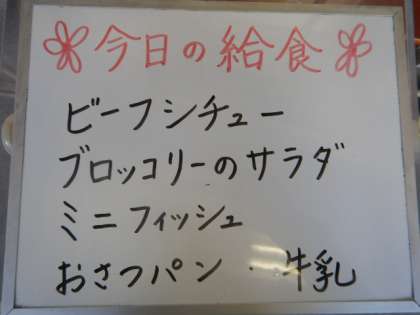 今日の給食
ビーフシチュー
ブロッコリーのサラダ
ミニフィッシュ
おさつパン・牛乳